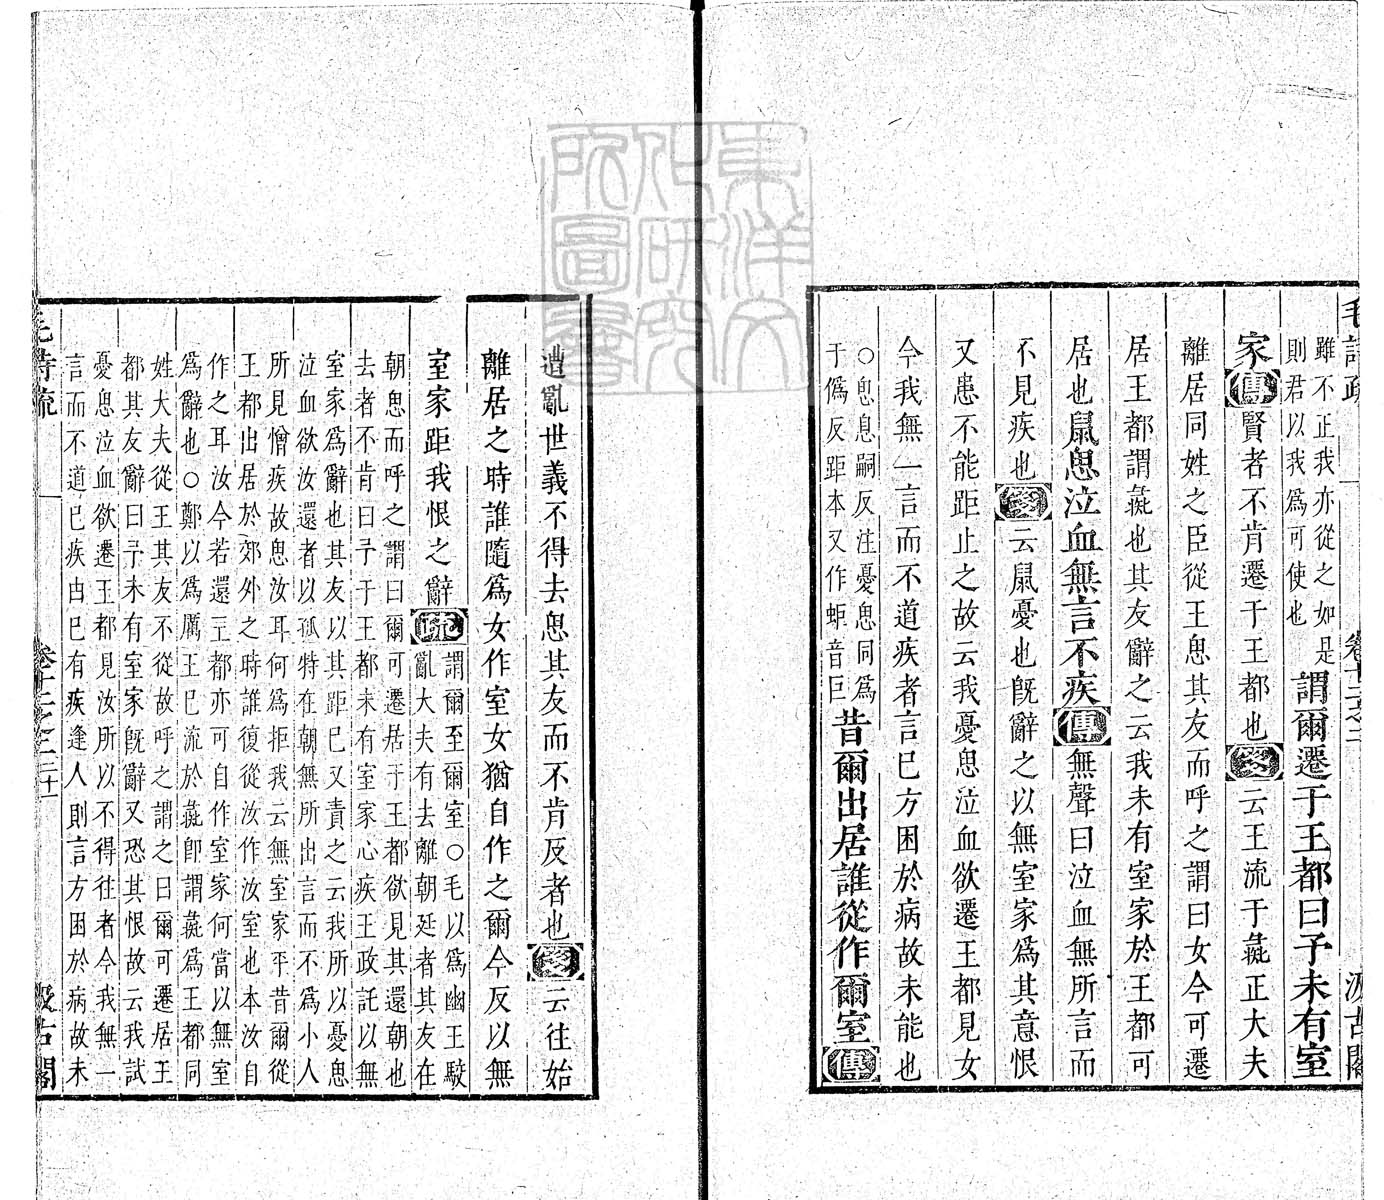 毛詩疏 卷十二之二 汲古閣
雖不正我亦從之如是
則君以我爲可使也
謂爾遷于王都曰予未有室
家傳賢者不肯遷于王都也箋云王流于彘正大夫
離居同姓之臣從王思其友而呼之謂曰女今可遷
居王都謂彘也其友辭之云我未有室家於王都可
居也鼠思泣血無言不疾傳無聲曰泣血無所言而
不見疾也箋云鼠憂也旣辭之以無室家爲其意恨
又患不能距止之故云我憂思泣血欲遷王都見女
今我無一言而不道疾者言已方困於病故未能也
○思息嗣反注憂思同爲
于僞反距本又作歫音巨
昔爾出居誰從作爾室傳
遭亂世義不得去思其友而不肯反者也箋云往始
離居之時誰隨爲女作室女猶自作之爾今反以無
室家距我恨之辭疏
謂爾至爾室○毛以爲幽王駮
亂大夫有去離朝廷者其友在
朝思而呼之謂曰爾可遷居于王都欲見其還朝也
去者不肯曰予于王都未有室家心疾王政託以無
室家爲辭也其友以其距已又責之云我所以憂思
泣血欲汝還者以孤特在朝無所出言而不爲小人
所見憎疾故思汝耳何爲拒我云無室家乎昔爾從
王都出居於郊外之時誰復從汝作汝室也本汝自
作之耳汝今若還王都亦可自作室家何當以無室
爲辭也○鄭以爲厲王已流於彘卽謂彘爲王都同
姓大夫從王其友不從故呼之謂之曰爾可遷居王
都其友辭曰予未有室家旣辭又恐其恨故云我試
憂思泣血欲遷王都見汝所以不得往者今我無一
言而不道已疾由已有疾逢人則言方困於病故未
毛詩疏 卷十二之二 二十一 汲古閣
東洋文化研究所圖書